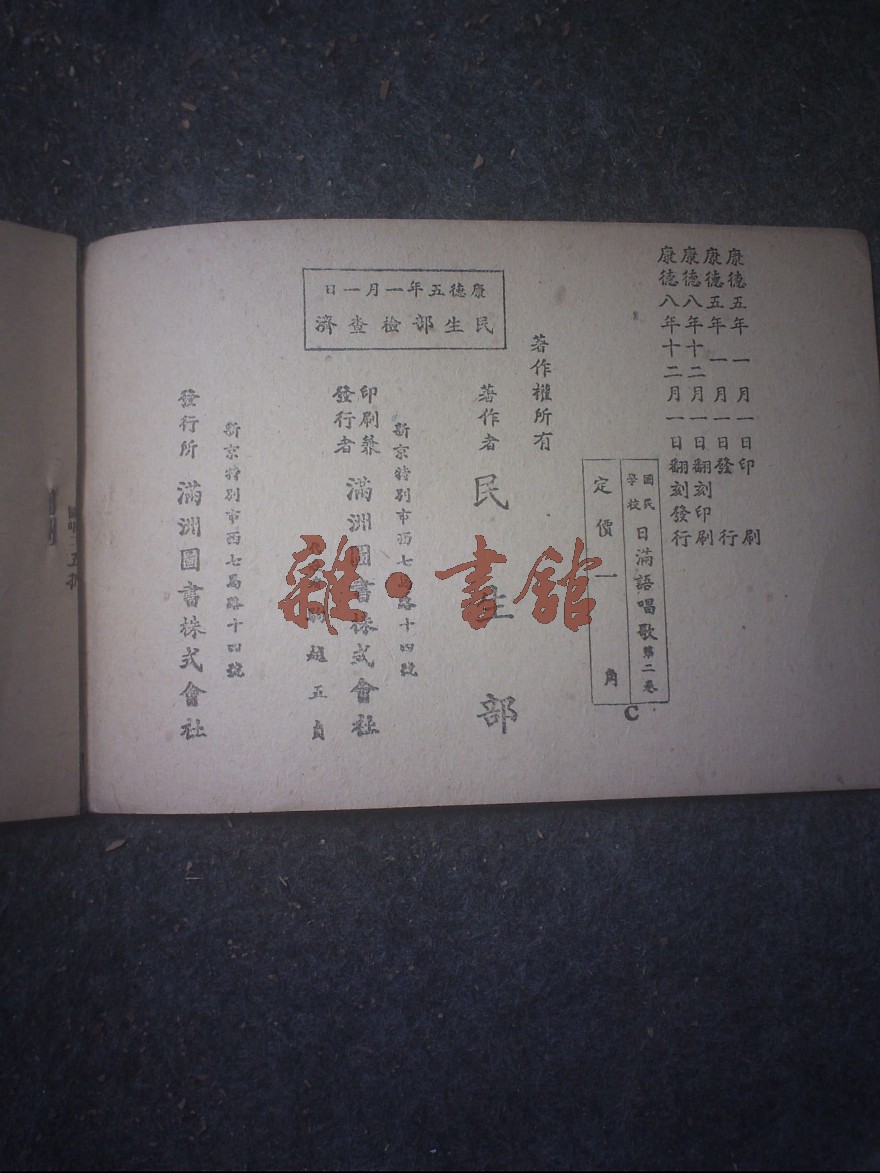 康德五年一月一日印刷
康德五年一月一日發行
康德八年十二月一日翻刻印刷
康德八年十二月一日翻刻發行
國民學校 日滿語唱歌 第二卷
定價一角
C
著作權所有
康德五年一月一日
民生部檢查濟
著作者 民生部
新京特別市西七馬路十四號
印刷兼發行者 滿洲圖書株式會社
趙五貞
新京特別市西七馬路十四號
發行所 滿洲圖書株式會社
雜·書館